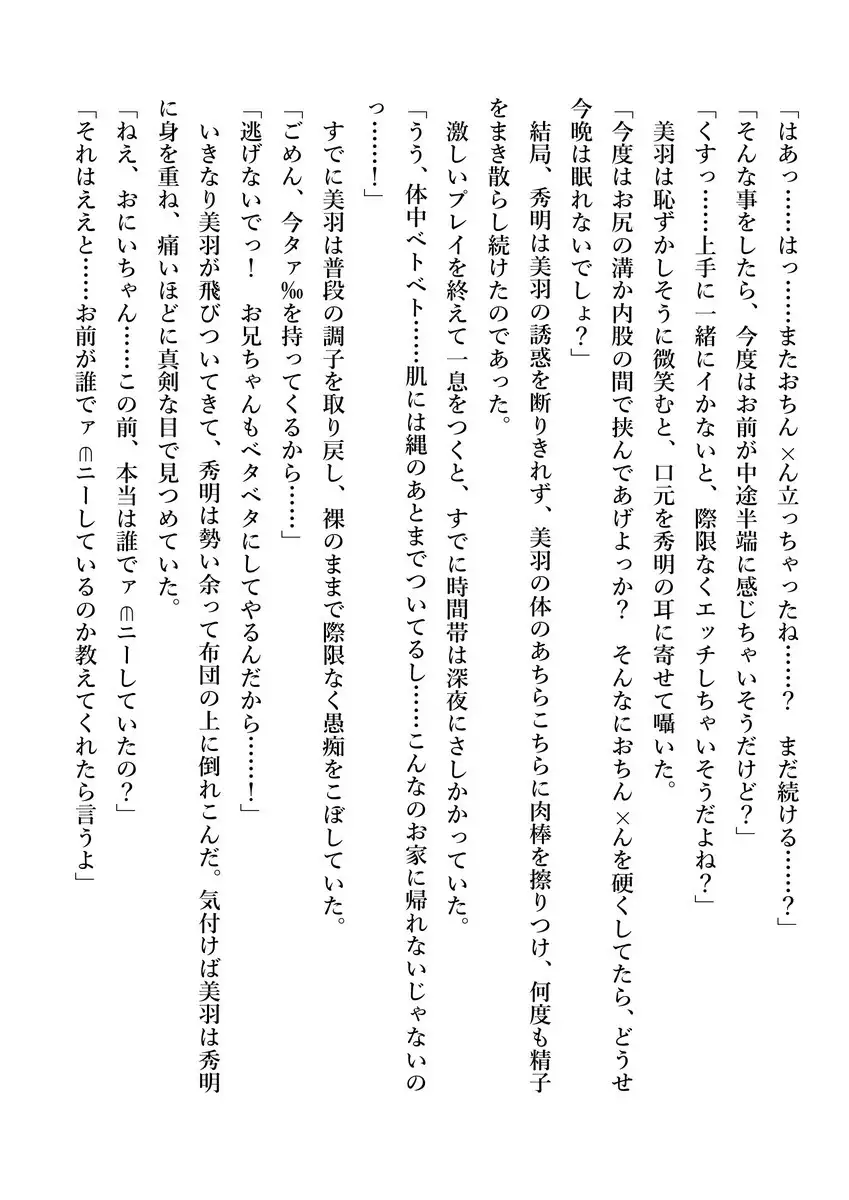 「はあっ……はっ……またおちん×ん立っちゃったね……？　まだ続ける……？」
「そんな事をしたら、今度はお前が中途半端に感じちゃいそうだけど？」
「くすっ……上手に一緒にイかないと、際限なくエッチしちゃいそうだよね？」
　美羽は恥ずかしそうに微笑むと、口元を秀明の耳に寄せて囁いた。
「今度はお尻の溝か内股の間で挟んであげよっか？　そんなにおちん×んを硬くしてたら、どうせ
今晩は眠れないでしょ？」
　結局、秀明は美羽の誘惑を断りきれず、美羽の体のあちらこちらに肉棒を擦りつけ、何度も精子
をまき散らし続けたのであった。
　激しいプレイを終えて一息をつくと、すでに時間帯は深夜にさしかかっていた。
「うう、体中ベトベト……肌には縄のあとまでついてるし……こんなのお家に帰れないじゃないの
っ……！」
　すでに美羽は普段の調子を取り戻し、裸のままで際限なく愚痴をこぼしていた。
「ごめん、今タァ‰を持ってくるから……」
「逃げないでっ！　お兄ちゃんもベタベタにしてやるんだから……！」
　いきなり美羽が飛びついてきて、秀明は勢い余って布団の上に倒れこんだ。気付けば美羽は秀明
に身を重ね、痛いほどに真剣な目で見つめていた。
「ねえ、おにいちゃん……この前、本当は誰でァ⋒ニーしていたの？」
「それはええと……お前が誰でァ⋒ニーしているのか教えてくれたら言うよ」